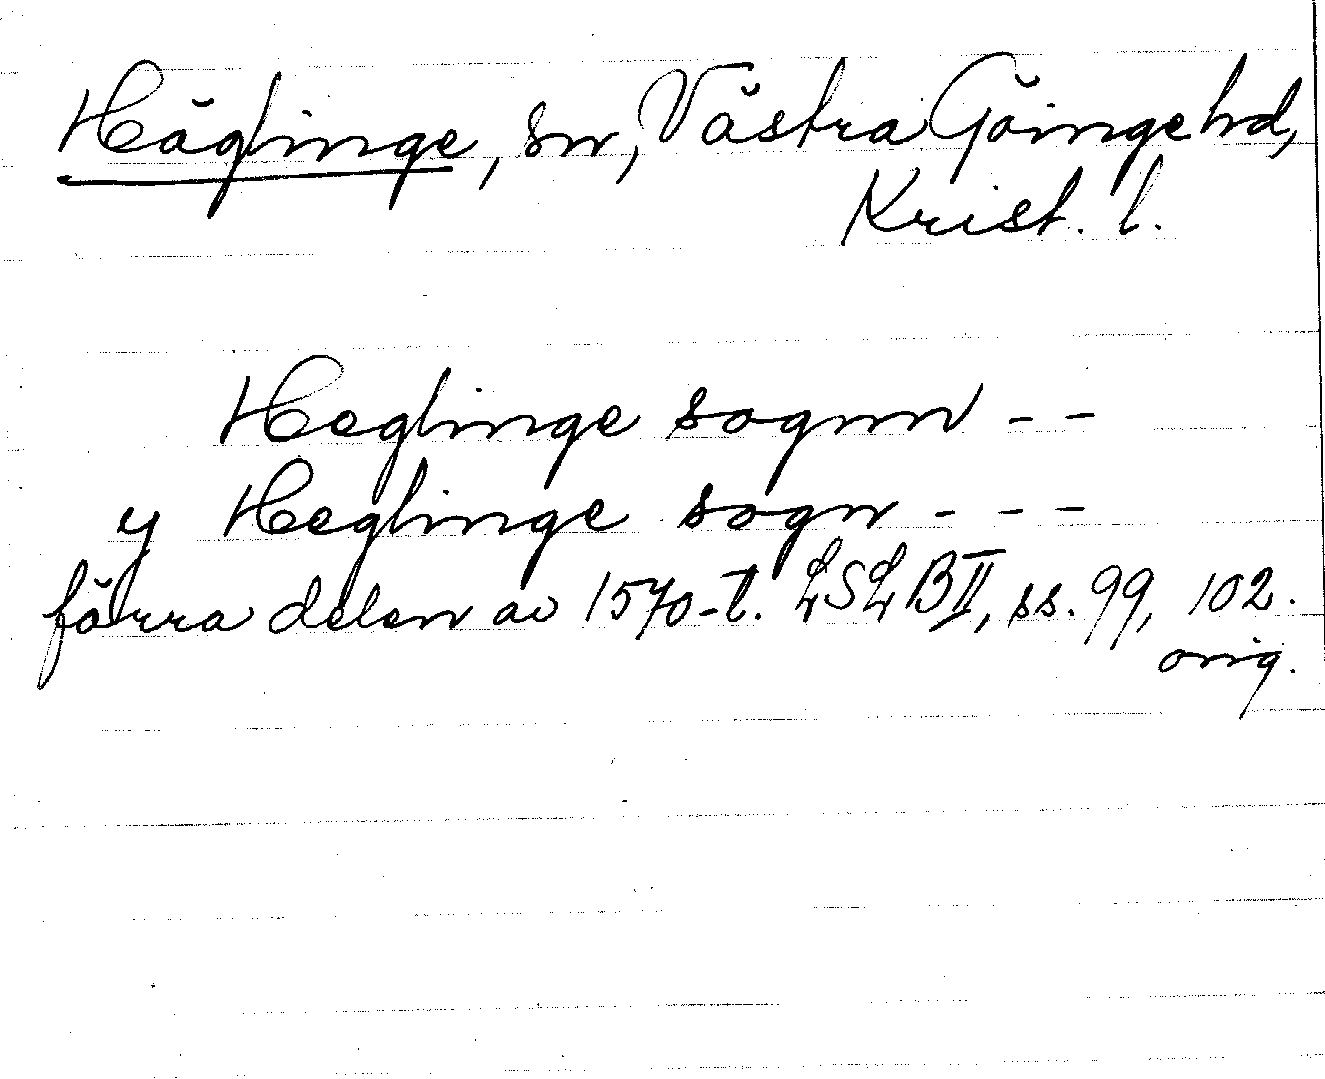 Häglinge, sn, Västra Göinge hd,
Krist. l.
Heglinge sognn - -
y Heglinge sogn - - -
förra delen av 1570-t. LSLB II, ss. 99, 102.
orig.